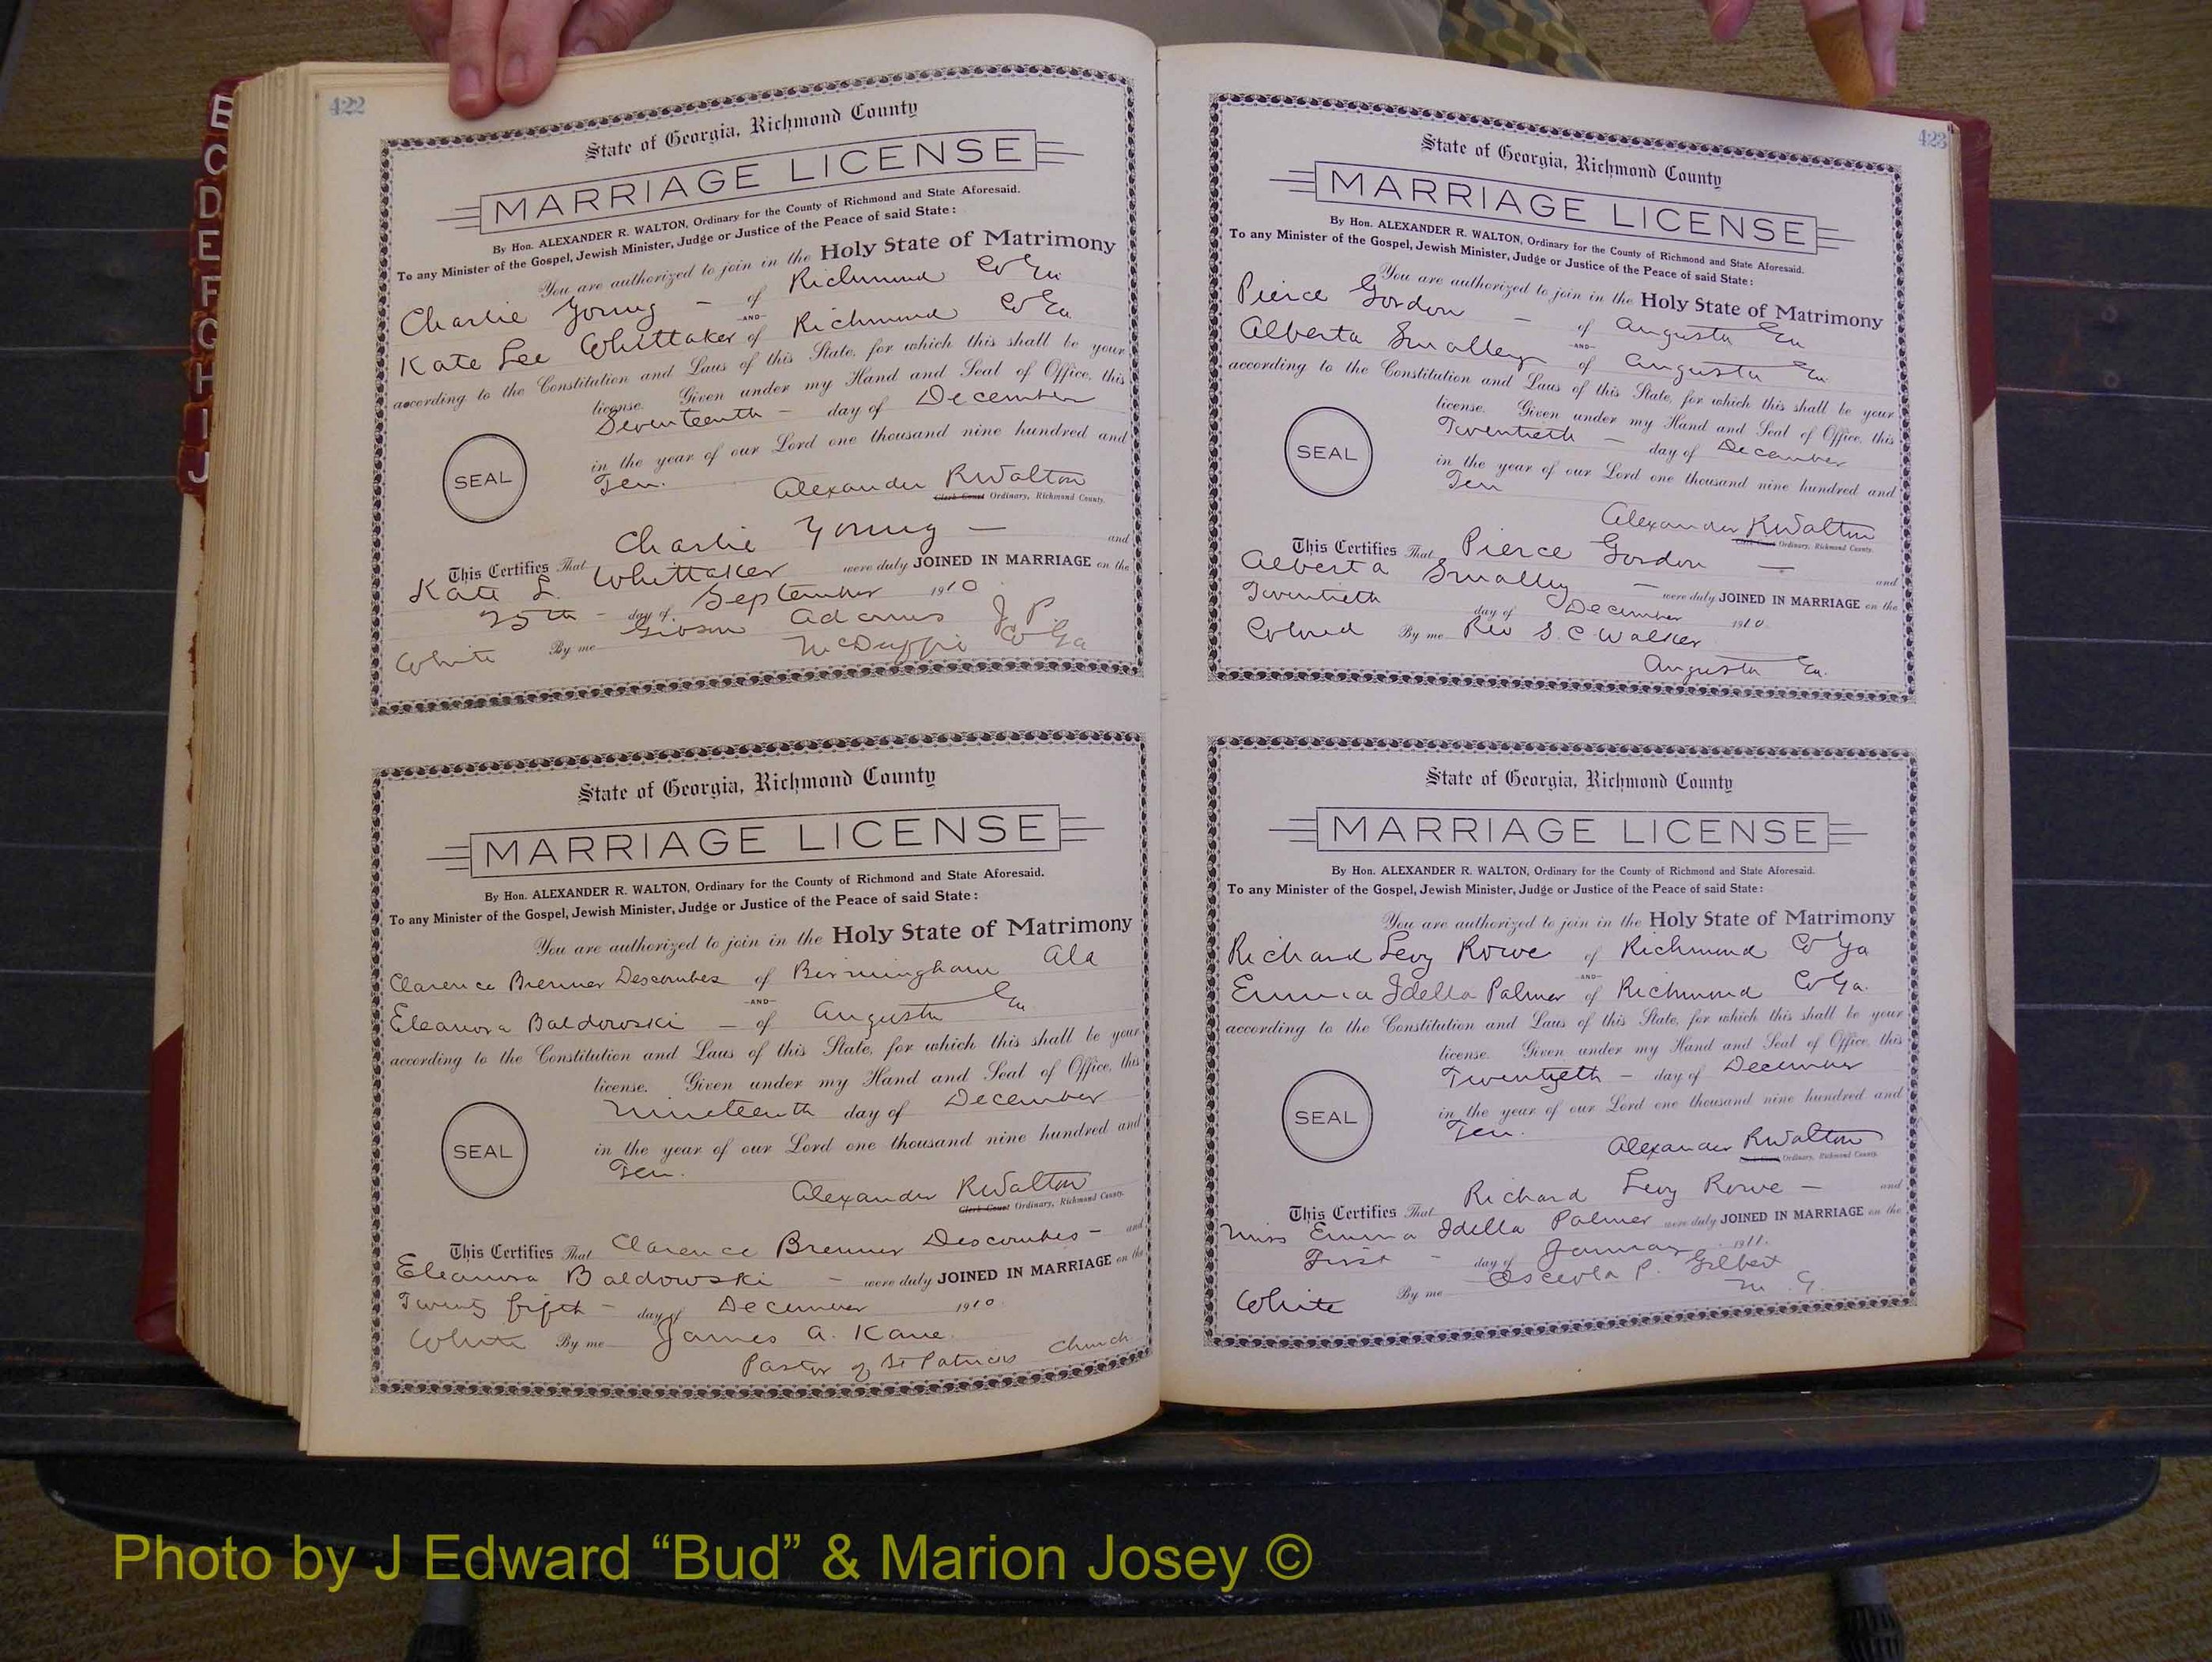 B
C
D
E
F
G
H
I
J
422
State of Georgia, Richmond County
MARRIAGE LICENSE
By Hon. ALEXANDER R. WALTON, Ordinary for the County of Richmond and State Aforesaid.
To any Minister of the Gospel, Jewish Minister, Judge or Justice of the Peace of said State:
You are authorized to join in the Holy State of Matrimony
Charlie Young — of Richmond Co Ga
—AND—
Kate Lee Whittaker of Richmond Co Ga
according to the Constitution and Laws of this State, for which this shall be your
license. Given under my Hand and Seal of Office, this
Seventeenth — day of December
in the year of our Lord one thousand nine hundred and
Ten.
SEAL
Alexander R Walton
Clerk Court Ordinary, Richmond County.
This Certifies That Charlie Young — and
Kate L. Whittaker were duly JOINED IN MARRIAGE on the
25th — day of September 1910
White By me Gibson Adams J P
McDuffie Co Ga
State of Georgia, Richmond County
MARRIAGE LICENSE
By Hon. ALEXANDER R. WALTON, Ordinary for the County of Richmond and State Aforesaid.
To any Minister of the Gospel, Jewish Minister, Judge or Justice of the Peace of said State:
You are authorized to join in the Holy State of Matrimony
Clarence Brenner Descombes of Birmingham Ala
—AND—
Eleanora Baldowski — of Augusta Ga
according to the Constitution and Laws of this State, for which this shall be your
license. Given under my Hand and Seal of Office, this
Nineteenth day of December
in the year of our Lord one thousand nine hundred and
Ten.
SEAL
Alexander R Walton
Clerk Court Ordinary, Richmond County.
This Certifies That Clarence Brenner Descombes — and
Eleanora Baldowski — were duly JOINED IN MARRIAGE on the
Twenty fifth — day of December 1910
White By me James A. Kane.
Pastor of St Patricks Church
423
State of Georgia, Richmond County
MARRIAGE LICENSE
By Hon. ALEXANDER R. WALTON, Ordinary for the County of Richmond and State Aforesaid.
To any Minister of the Gospel, Jewish Minister, Judge or Justice of the Peace of said State:
You are authorized to join in the Holy State of Matrimony
Pierce Gordon — of Augusta Ga
—AND—
Alberta Smalley of Augusta Ga.
according to the Constitution and Laws of this State, for which this shall be your
license. Given under my Hand and Seal of Office, this
Twentieth — day of December
in the year of our Lord one thousand nine hundred and
Ten
SEAL
Alexander R Walton
Clerk Court Ordinary, Richmond County.
This Certifies That Pierce Gordon — and
Alberta Smalley — were duly JOINED IN MARRIAGE on the
Twentieth day of December 1910.
Colored By me Rev S. C Walker
Augusta Ga.
State of Georgia, Richmond County
MARRIAGE LICENSE
By Hon. ALEXANDER R. WALTON, Ordinary for the County of Richmond and State Aforesaid.
To any Minister of the Gospel, Jewish Minister, Judge or Justice of the Peace of said State:
You are authorized to join in the Holy State of Matrimony
Richard Levy Rowe of Richmond Co Ga
—AND—
Emma Idella Palmer of Richmond Co Ga.
according to the Constitution and Laws of this State, for which this shall be your
license. Given under my Hand and Seal of Office, this
Twentyeth — day of December
in the year of our Lord one thousand nine hundred and
Ten.
SEAL
Alexander R Walton
Clerk Court Ordinary, Richmond County.
This Certifies That Richard Levy Rowe — and
Miss Emma Idella Palmer were duly JOINED IN MARRIAGE on the
First — day of January 1911.
White By me Osceola P. Gilbert
M. G.
Photo by J Edward “Bud” & Marion Josey ©